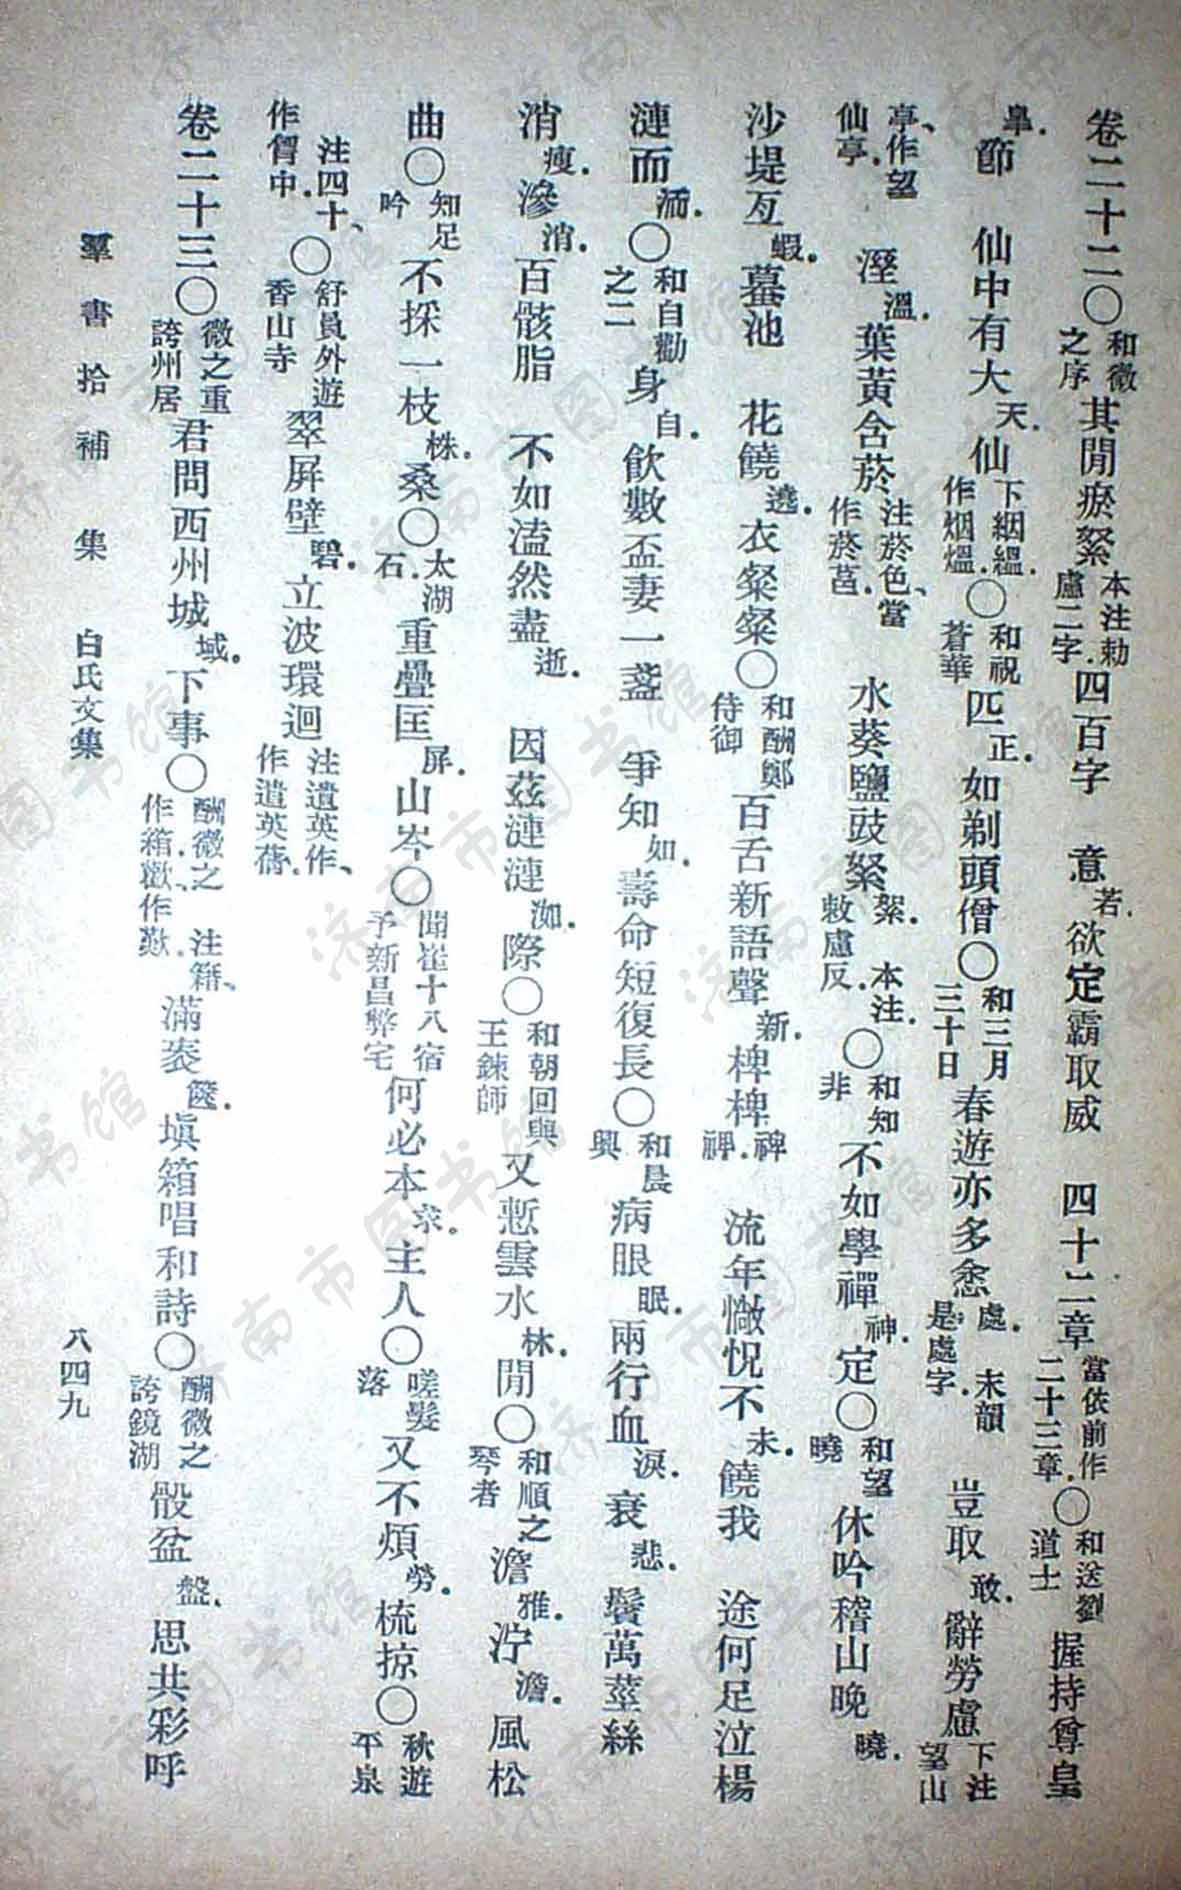 卷二十二〇和微之序其閒瘀絮本注勅慮二字.四百字　意若.欲定霸取威　四十二章當依前作二十三章.〇和送劉道士握持尊皇
皐.節　仙中有大天.仙下絪緼.作烟熅.〇和祝蒼華匹正.如剃頭僧〇和三月三十日春遊亦多悆處.末韻是處字.　豈取敢.辭勞慮下注望山
亭、作望仙亭.　溼溫.葉黃含菸注菸色、當作菸菖.　水葵鹽豉絮絮.本注.敕慮反.〇和知非不如學禪神.定〇和望曉休吟稽山晚曉.
沙堤亙蝦.蟇池　花饒遶.衣粲粲〇和酬鄭侍御百舌新語聲新.椑椑裨裨.　流年憿怳不未.饒我　途何足泣楊
漣而洏.〇和自勸之二身自.飲數盃妻一盞　爭知如.壽命短復長〇和晨興病眼眠.兩行血淚.　衰悲.鬢萬莖絲
消瘦.滲消.百骸脂　不如溘然盡逝.　因茲漣漣洳.際〇和朝回與王鍊師又慙雲水林.閒〇和順之琴者澹雅.泞澹.風松
曲〇知足吟不採一枝株.桑〇太湖石.重疊匡屏.山岑〇聞崔十八宿予新昌弊宅何必本求.主人〇嗟髮落又不煩勞.梳掠〇秋遊平泉
注四十、作㑹中.〇舒員外遊香山寺翠屏壁碧.立波環迴注遺英作、作遺英蒨.
卷二十三〇微之重誇州居君問西州城域.下事〇酬微之　注籍、作箱.歡、作歎.滿袠篋.塡箱唱和詩〇酬微之誇鏡湖骰盆盤.思共彩呼
羣書拾補　集　白氏文集　八四九
济南市图书馆